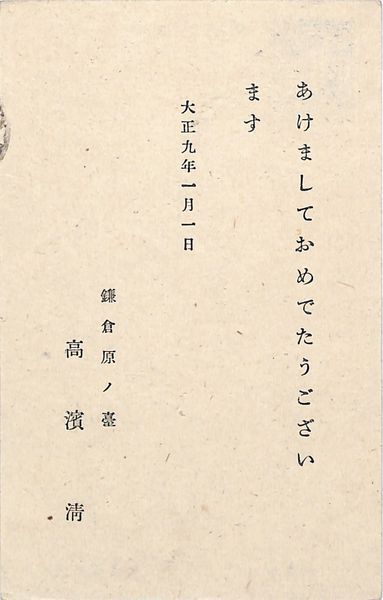 あけましておめでたうござい
ます
大正九年一月一日
鎌倉原ノ臺
高濱清